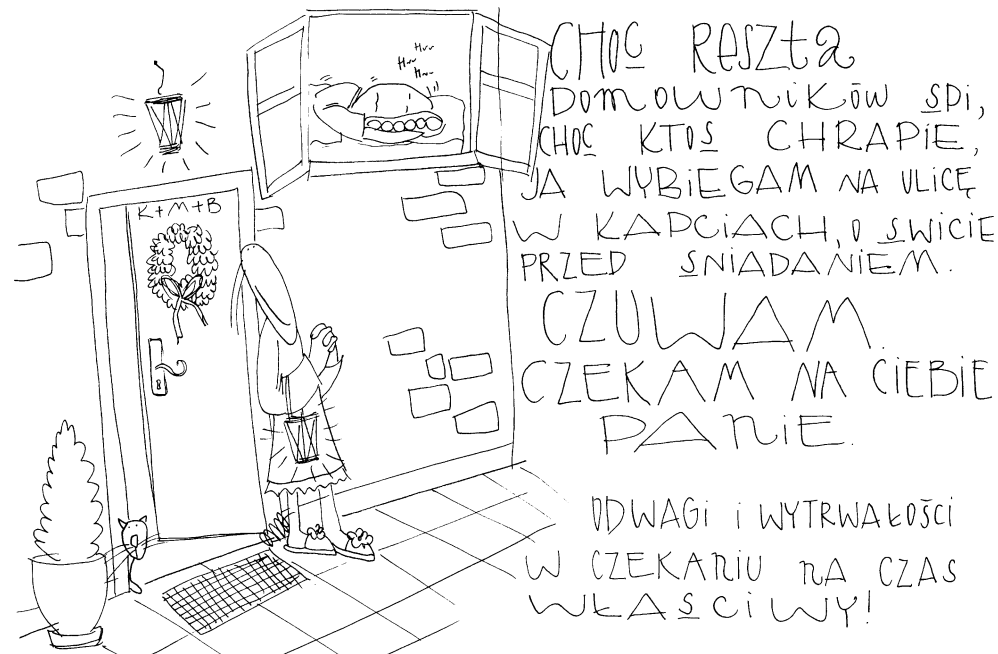 Hrr
Hrr
Hrr
K+M+B
CHOĆ RESZtA
DOMOWNIKÓW ŚPI,
CHOĆ KTOŚ CHRAPIE,
JA WYBIEGAM NA ULICĘ
W KAPCIACH, O ŚWICIE
PRZED ŚNIADANIEM.
CZUWAM.
CZEKAM NA CIEBIE
PANIE.
ODWAGI i WYTRWAŁOŚCI
W CZEKANIU NA CZAS
WŁAŚCIWY!